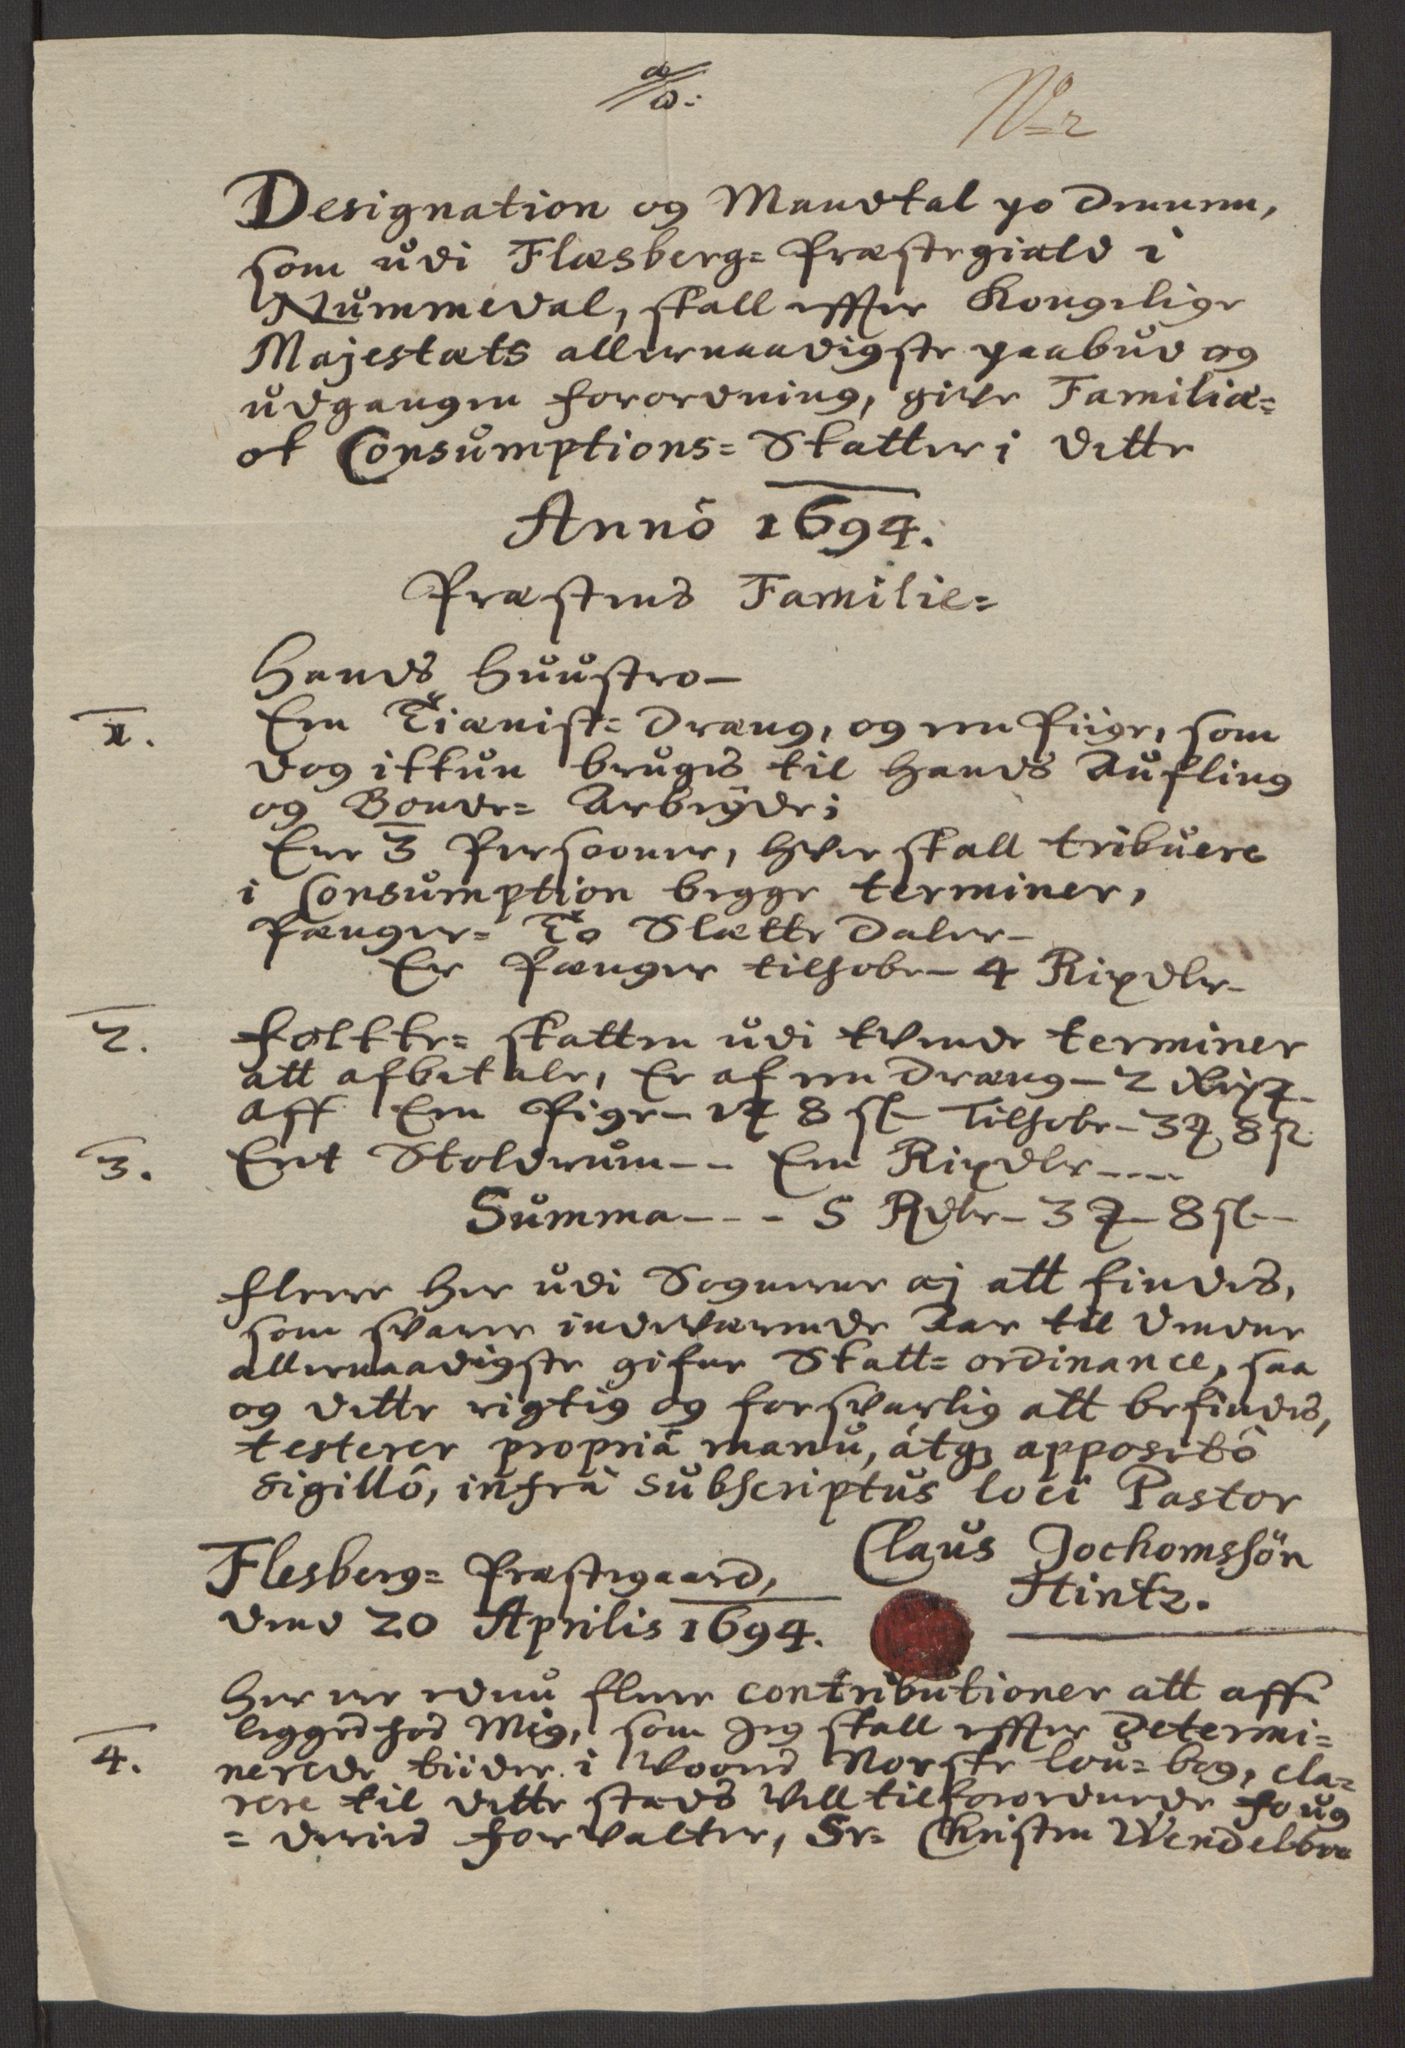 α/ω:
No 2
Designation og Mandtal po dennem,
som udi Flæsberg= Præstegiæld i
Nummedal, skall effter Kongelige
Majestæts allernaadigste paabud og
udgangen forordning, give Familiæ=
ok Consumptions= Skatter i dette
Annô 1694.
Præstens Familie=
Hands Huustro—
1. Een Tiænist= Dræng, og een Piige, som
dog ikkun bruges til hands Aufling
og Bonde= Arbeyde;
Ere 3 Persooner, Hver skall tribuere
i Consumption begge terminer,
Pænger= To Slætte Daler—
Er Pænger tilhobe— 4 Rixdlr—
2. Folkke= skatten udi tvende terminer
att afbetale, Er af een Dræng— 2 
Aff Een Pige— 1 8 sk— Tilhobe— 3 8 sk
3. Eet Stoldrum— — Een Rixdlr— — —
Summa— — — 5 Rdlr— 3 — 8 sk—
Fleere her udi Sognerne ej att findes,
som svarer indeværende Aar til denne
allernaadigste gifne Skatt= ordinance, saa
og dette rigtig og forsvarlig att befindes,
testerer propriâ manu, átq apposito
sigillô, infrà subscriptus loci Pastor
Claus Jochomssön
Hintz.
Flesberg= Præstegaard,
dend 20 Aprilis 1694.
4. Her ere ednu fleere contributioner att aff=
legges hos Mig, som Jeg skall effter determi=
nerede tiider i Voores Norske lou= bog, cla=
rere til dette stæds Vell tilforordnede foug
= deries forvalter, Sr= Christen Wendelboe